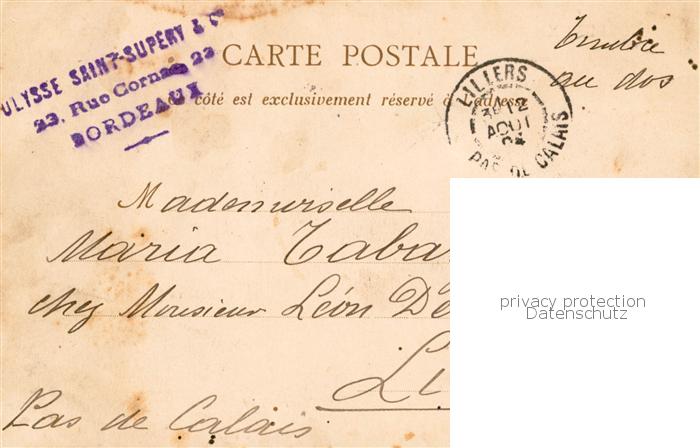 ULYSSE SAINT-SUPÉRY & Cie
23, Rue Cornac 23
BORDEAUX
CARTE POSTALE
côté est exclusivement réservé à l'adresse
Timbre
au dos
LILLERS
12
AOUT
04
PAS DE CALAIS
Mademoiselle
Maria
chez Monsieur Léon
Pas de Calais
privacy protection
Datenschutz